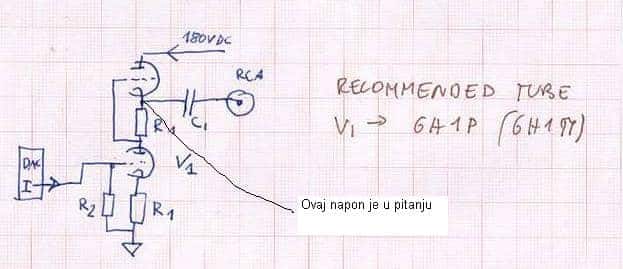 180VDC
RCA
RECOMMENDED TUBE
R1
C1
V1 → 6H1P (6H1П)
DAC
I
V1
R2
R1
Ovaj napon je u pitanju